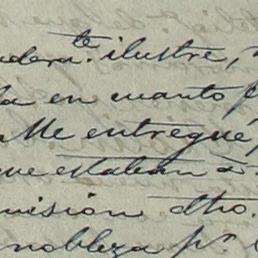 adera.te ilustre,
la en cuanto p
Me entregué,
que estaban à
mision dho.
nobleza pr